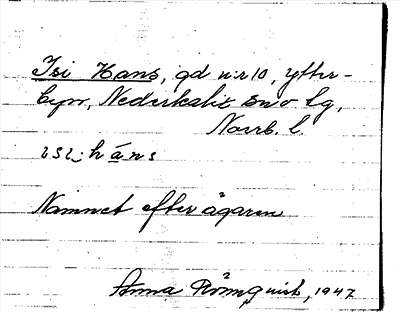 Isi Hans, gd nr 10, Ytter-
byn, Nederkalix sn o lg,
Norrb. l.
ɩsɩ-hans
Namnet efter ägaren
Anna Rönnquist, 1947